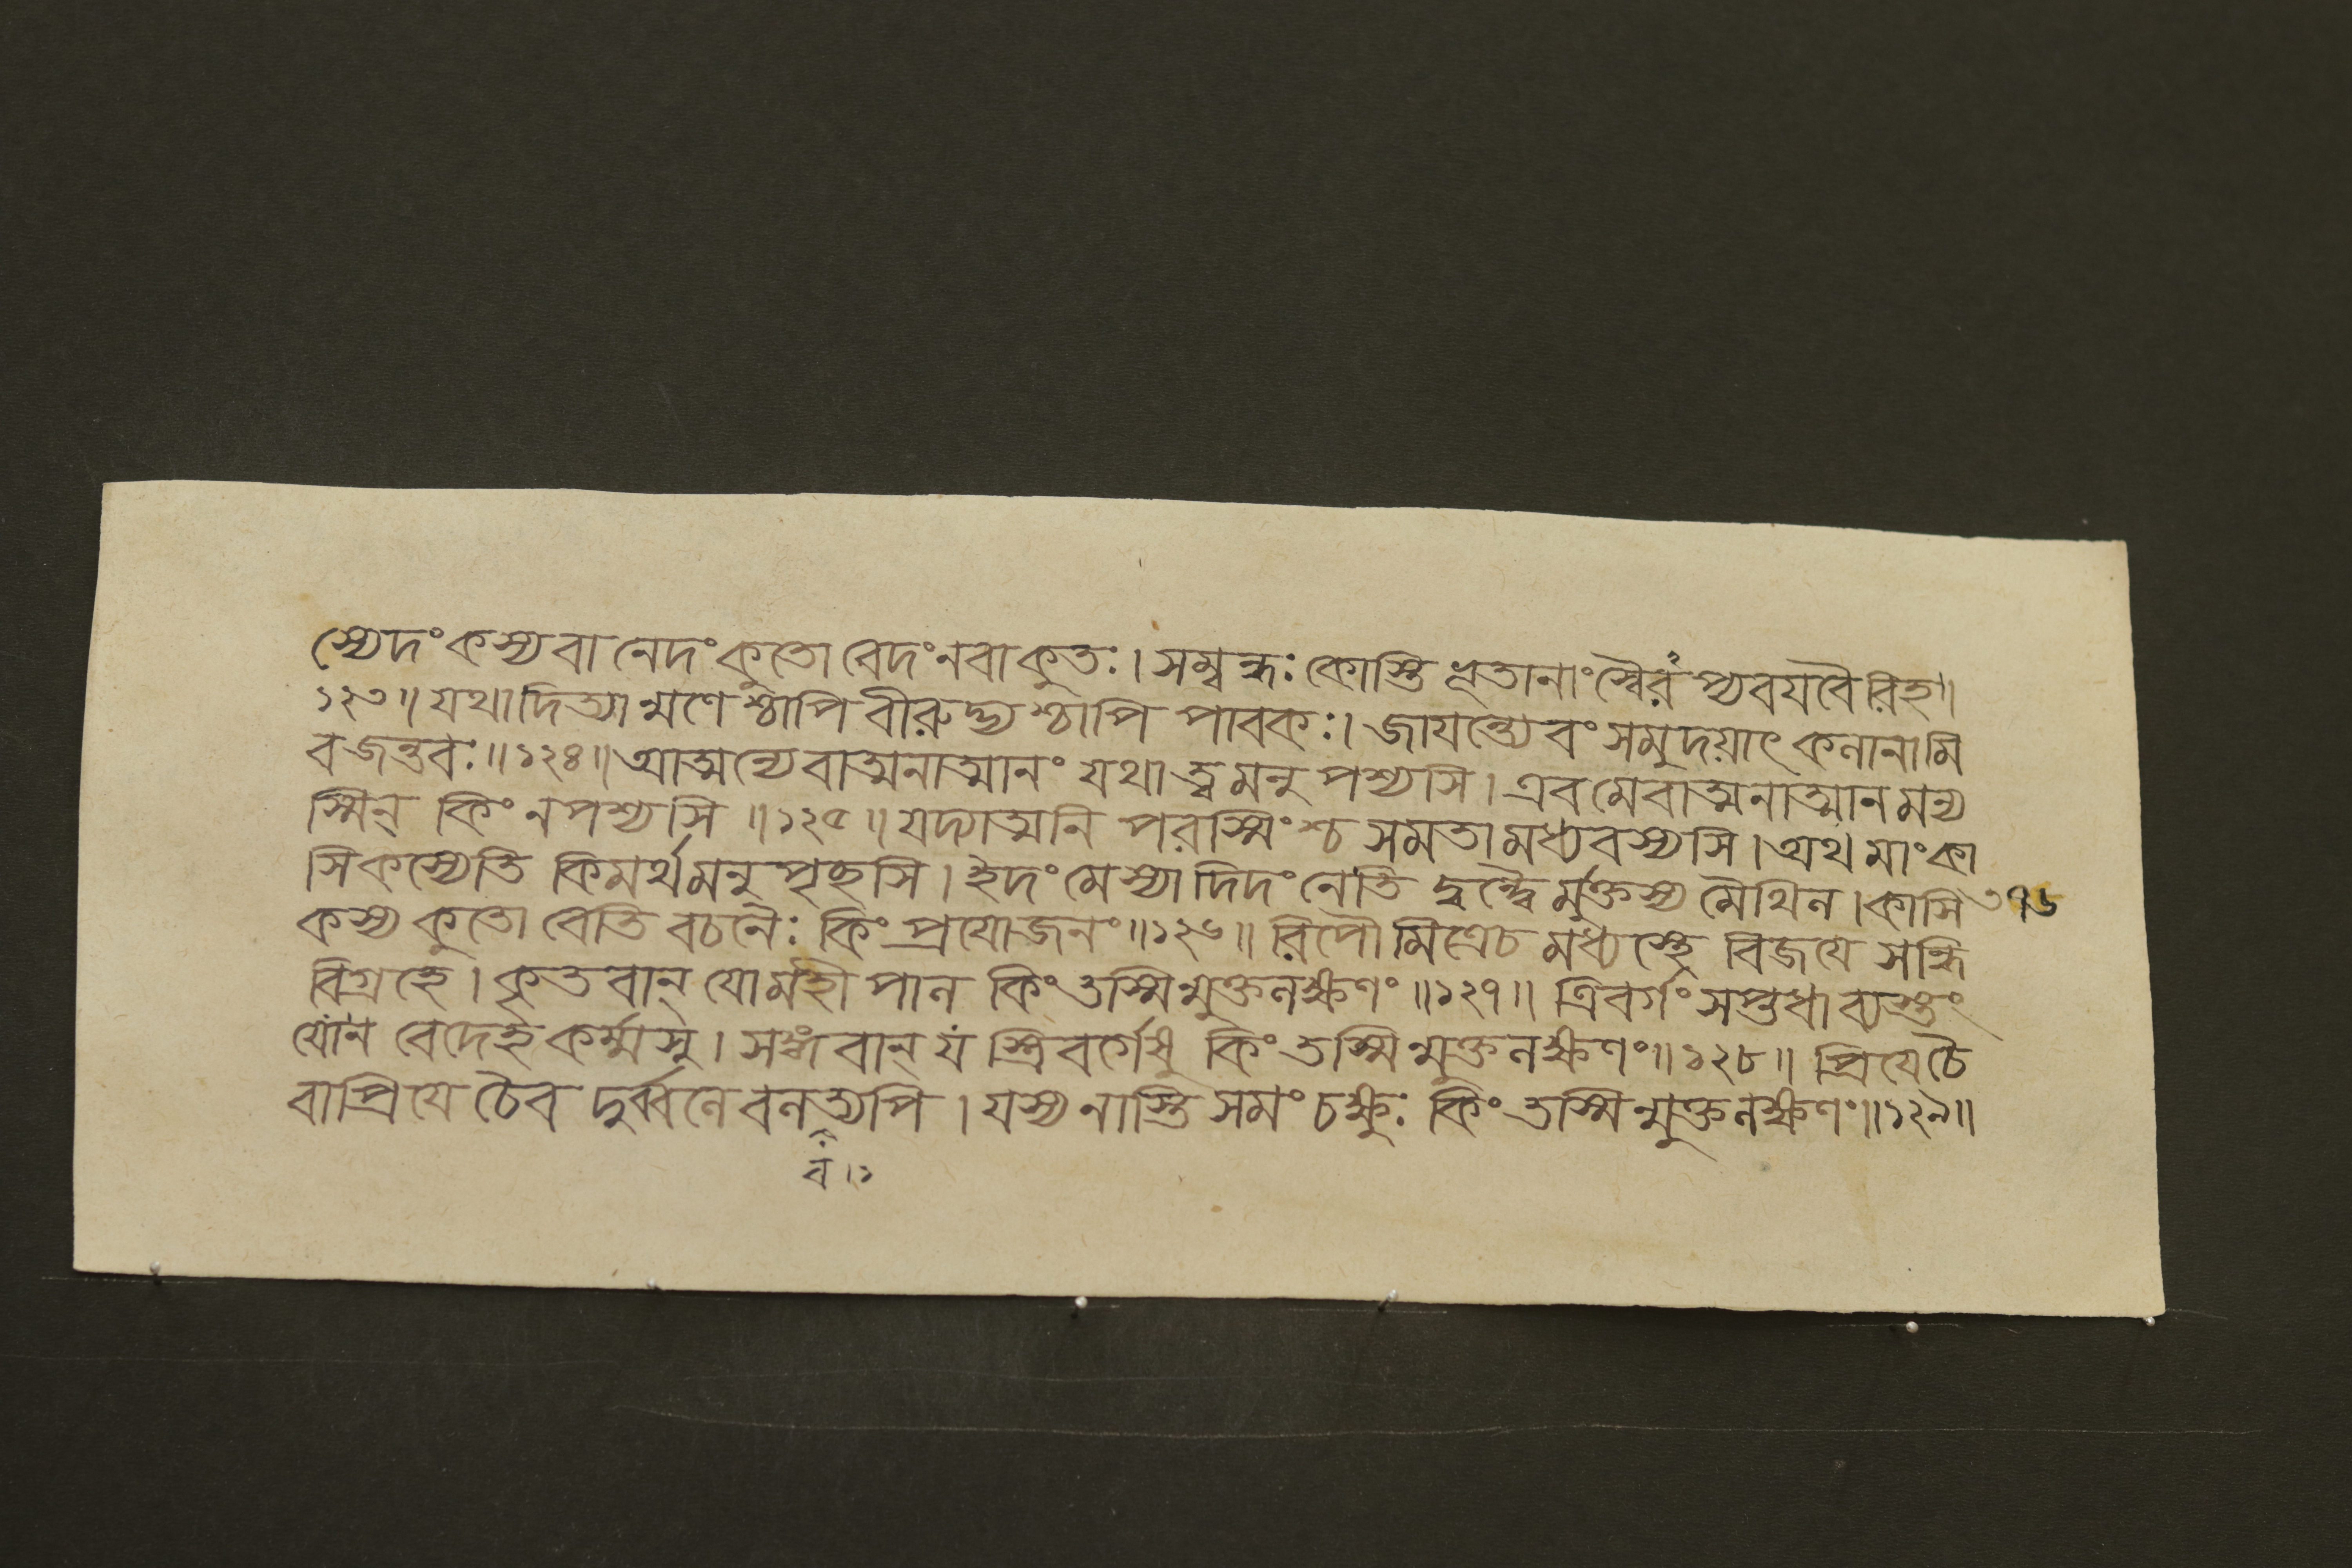 স্যেদং কস্য বা নেদং কুতো বেদং ন বা কুতঃ। সম্বন্ধঃ কোস্তি ভূতানাং স্বৈরং প্যবযবৈরিহ॥
১২৩॥ যথাদিত্যান্মণেশ্চাপি বীরুদ্ভ্যশ্চাপি পাবকঃ। জাযন্ত্যেবং সমুদয়াৎ কলানামি
ব জন্তবঃ॥১২৪॥ আত্মন্যেবাত্মনাত্মানং যথা ত্বমনুপশ্যসি। এবমেবাত্মনাত্মানমন্য
স্মিন্ কিং ন পশ্যসি॥১২৫॥ যদ্যাত্মনি পরস্মিংশ্চ সমতামধ্যবস্যসি। অথ মাং কা
সি কস্যেতি কিমর্থমনুপৃচ্ছসি। ইদং মে স্যাদিদং নেতি দ্বন্দ্বৈর্মুক্তস্য মৈথিল। কাসি ৩৭৬
কস্য কুতো বেতি বচনৈঃ কিং প্রযোজনং॥১২৬॥ রিপৌ মিত্রেচ মধ্যস্থে বিজযে সন্ধি
বিগ্রহে। কৃতবান্ যো মহীপাল কিং তস্মিন্মুক্তলক্ষণং॥১২৭॥ ত্রিবর্গং সপ্তধা ব্যস্তং
যো ন বেদেহ কর্ম্মসু। সঙ্গবান্ যস্ত্রিবর্গেষু কিং তস্মিন্মুক্তলক্ষণং॥১২৮॥ প্রিযে চৈ
বাপ্রিযে চৈব দুর্ব্বলে বলত্যপি। যস্য নাস্তি সমং চক্ষুঃ কিং তস্মিন্মুক্তলক্ষণং॥১২৯॥
ব।১